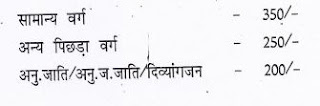 सामान्य वर्ग - 350/-
अन्य पिछड़ा वर्ग - 250/-
अनु.जाति/अनु.ज.जाति/दिव्यांगजन - 200/-